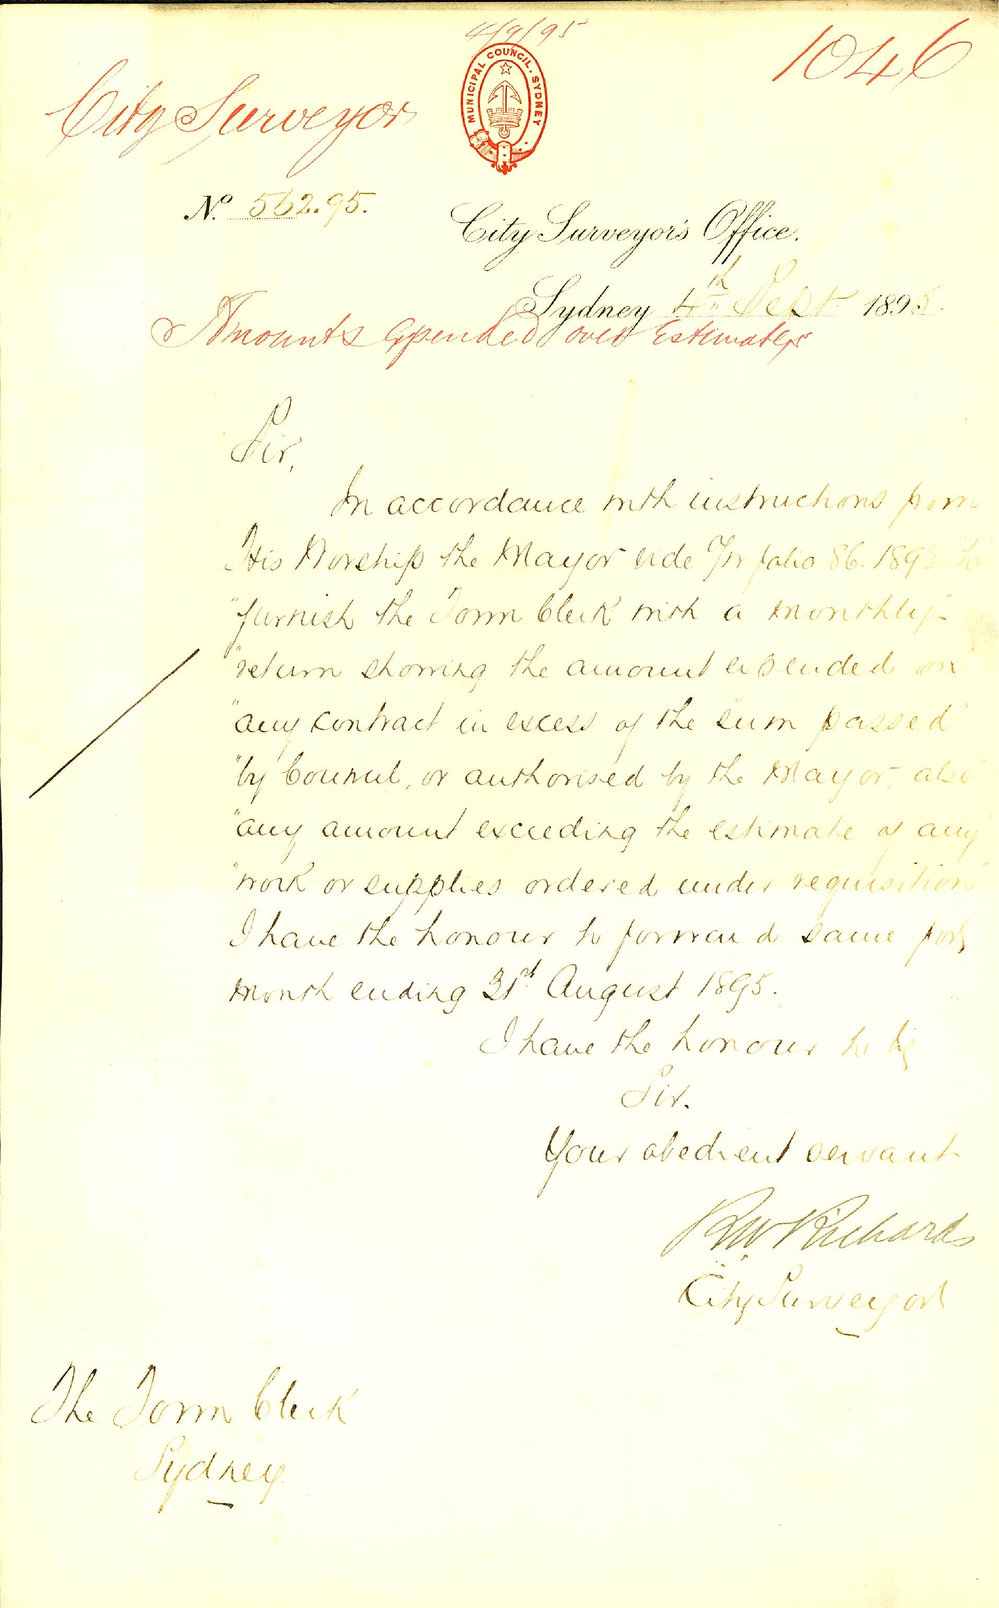 4/9/95
1046
MUNICIPAL COUNCIL. SYDNEY
City Surveyor
No. 552.95.
City Surveyor's Office.
Sydney 4th Sept 1895.
Amounts Expended over Estimates
Sir,
In accordance with instructions from
His Worship the Mayor vide folio 86. 189 to
"furnish the Town Clerk with a monthly"
"return showing the amount expended on"
"any contract in excess of the sum passed"
"by Council, or authorised by the Mayor, also"
"any amount exceeding the estimate of any
"work or supplies ordered under requisition"
I have the honour to forward same for
month ending 31st August 1895.
I have the honour to be
Sir.
Your obedient servant
R W Richards
City Surveyor
The Town Clerk
Sydney